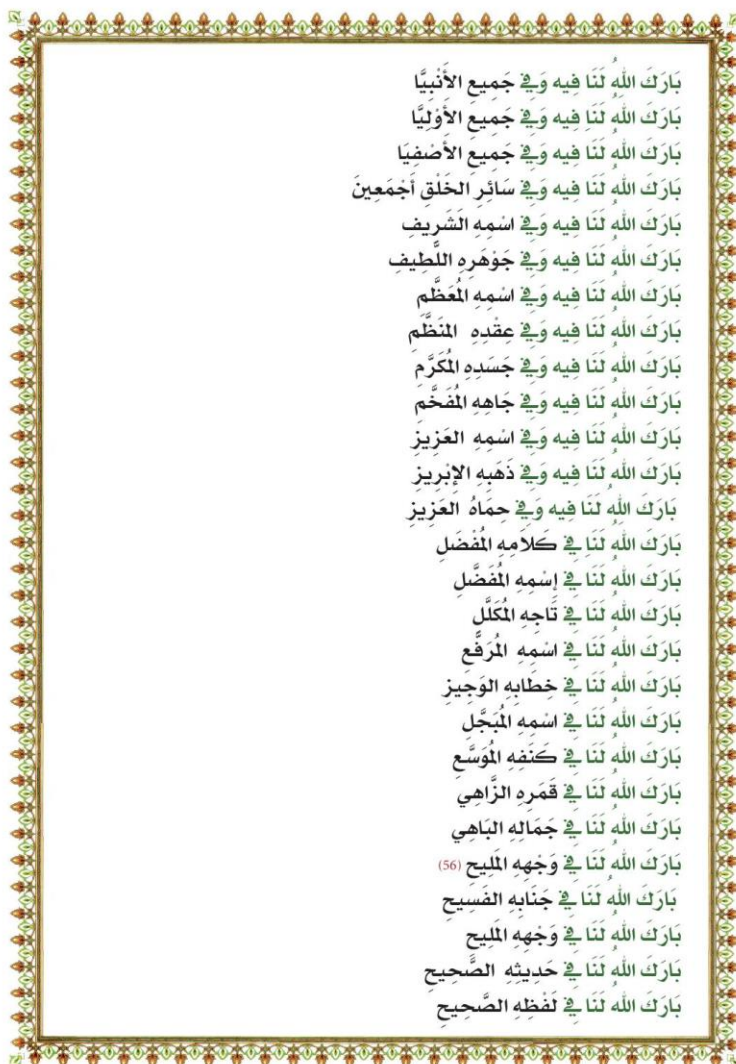 بَارَكَ اللهُ لَنَا فِيه وَفِي جَمِيعِ الأَنْبِيَّا
بَارَكَ اللهُ لَنَا فِيه وَفِي جَمِيعِ الأَوْلِيَّا
بَارَكَ اللهُ لَنَا فِيه وَفِي جَمِيعَ الأَصْفِيَا
بَارَكَ اللهُ لَنَا فِيه وَفِي سَائِرِ الخَلْقِ أَجْمَعِينَ
بَارَكَ اللهُ لَنَا فِيه وَفِي اسْمِهِ الشَرِيفِ
بَارَكَ اللهُ لَنَا فِيه وَفِي جَوْهَرِهِ اللَّطِيفِ
بَارَكَ اللهُ لَنَا فِيه وَفِي اسْمِهِ المُعَظَّم
بَارَكَ اللهُ لَنَا فِيه وَفِي عِقْدِهِ المُنَظَّم
بَارَكَ اللهُ لَنَا فِيه وَفِي جَسَدِهِ المُكَرَّم
بَارَكَ اللهُ لَنَا فِيه وَفِي جَاهِهِ المُفَخَّم
بَارَكَ اللهُ لَنَا فِيه وَفِي اسْمِهِ العَزِيزِ
بَارَكَ اللهُ لَنَا فِيه وَفِي ذَهَبِهِ الإِبْرِيزِ
بَارَكَ اللهُ لَنَا فِيه وَفِي حِمَاهُ العَزِيزِ
بَارَكَ اللهُ لَنَا فِي كَلاَمِهِ المُفْضَلِ
بَارَكَ اللهُ لَنَا فِي إِسْمِهِ المُفَضَّلِ
بَارَكَ اللهُ لَنَا فِي تَاجِهِ المُكَلَّلِ
بَارَكَ اللهُ لَنَا فِي اسْمِهِ المُرَفَّعِ
بَارَكَ اللهُ لَنَا فِي خِطَابِهِ الوَجِيزِ
بَارَكَ اللهُ لَنَا فِي اسْمِهِ المُبَجَّلِ
بَارَكَ اللهُ لَنَا فِي كَنَفِهِ المُوَسَّعِ
بَارَكَ اللهُ لَنَا فِي قَمَرِهِ الزَّاهِي
بَارَكَ اللهُ لَنَا فِي جَمَالِهِ البَاهِي
بَارَكَ اللهُ لَنَا فِي وَجْهِهِ المَلِيحِ (56)
بَارَكَ اللهُ لَنَا فِي جَنَابِهِ الفَسِيحِ
بَارَكَ اللهُ لَنَا فِي وَجْهِهِ المَلِيحِ
بَارَكَ اللهُ لَنَا فِي حَدِيثِهِ الصَّحِيحِ
بَارَكَ اللهُ لَنَا فِي لَفْظِهِ الصَّحِيحِ